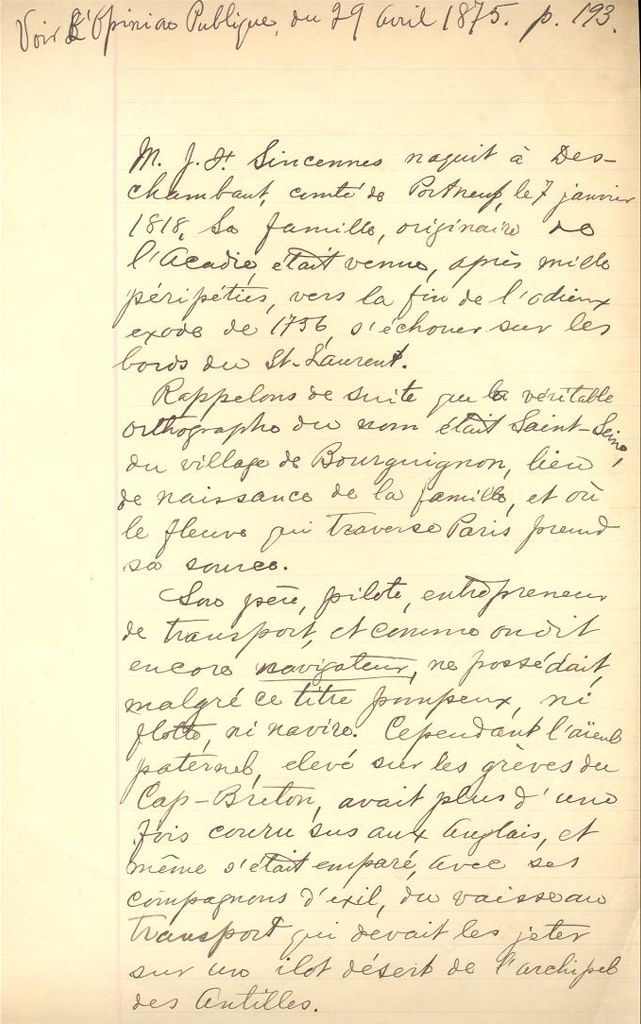 Voir L'Opinion Publique, du 29 avril 1875. p. 193.
M. J. F. Sincennes naquit à Des-
chambaut, comté de Portneuf, le 7 janvier
1818, Sa famille, originaire de
l'Acadie, était venue, après mille
péripéties, vers la fin de l'odieux
exode de 1756, s'échouer sur les
bords du St-Laurent.
Rappelons de suite que la véritable
orthographe du nom était Saint-Seine,
du village de Bourguignon, lieu
de naissance de la famille, et où
le fleuve qui traverse Paris prend
sa source.
Son père, pilote, entrepreneur
de transport, et comme on dit
encore navigateur, ne possédait,
malgré ce titre pompeux, ni
flotte, ni navire. Cependant l'aïeul
paternel, elevé sur les grèves du
Cap-Breton, avait plus d'une
fois couru sus aux Anglais, et
même s'était emparé, avec ses
compagnons d'exil, du vaisseau
transport qui devait les jeter
sur un ilot désert de l'archipel
des Antilles.